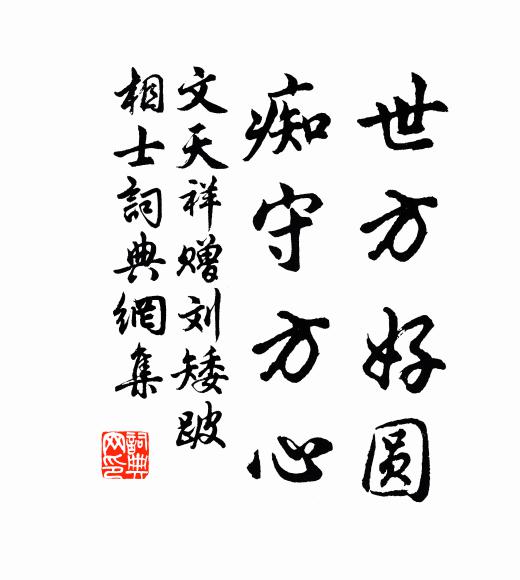 世方好圆
痴守方心
文天祥赠刘矮跛
相士詞典網集
詞典网印